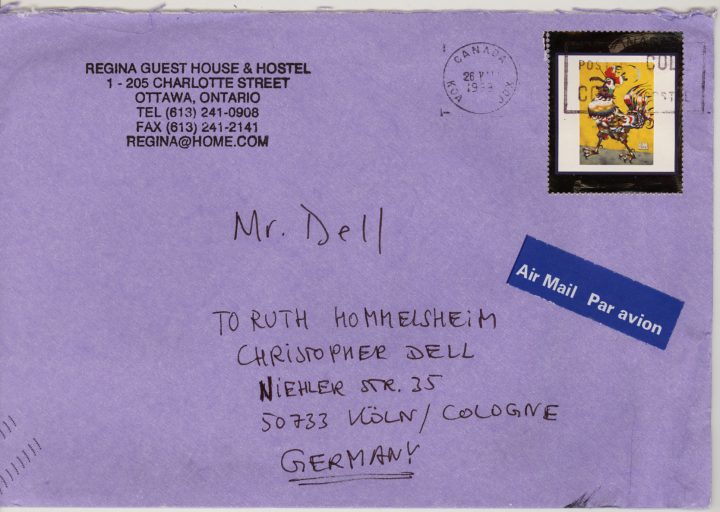 REGINA GUEST HOUSE & HOSTEL
1 - 205 CHARLOTTE STREET
OTTAWA, ONTARIO
TEL (613) 241-0908
FAX (613) 241-2141
REGINA@HOME.COM
CANADA
1999
Mr. Dell
Air Mail Par avion
TO RUTH HOMMELSHEIM
CHRISTOPHER DELL
NIEHLER STR. 35
50733 KÖLN / COLOGNE
GERMANY